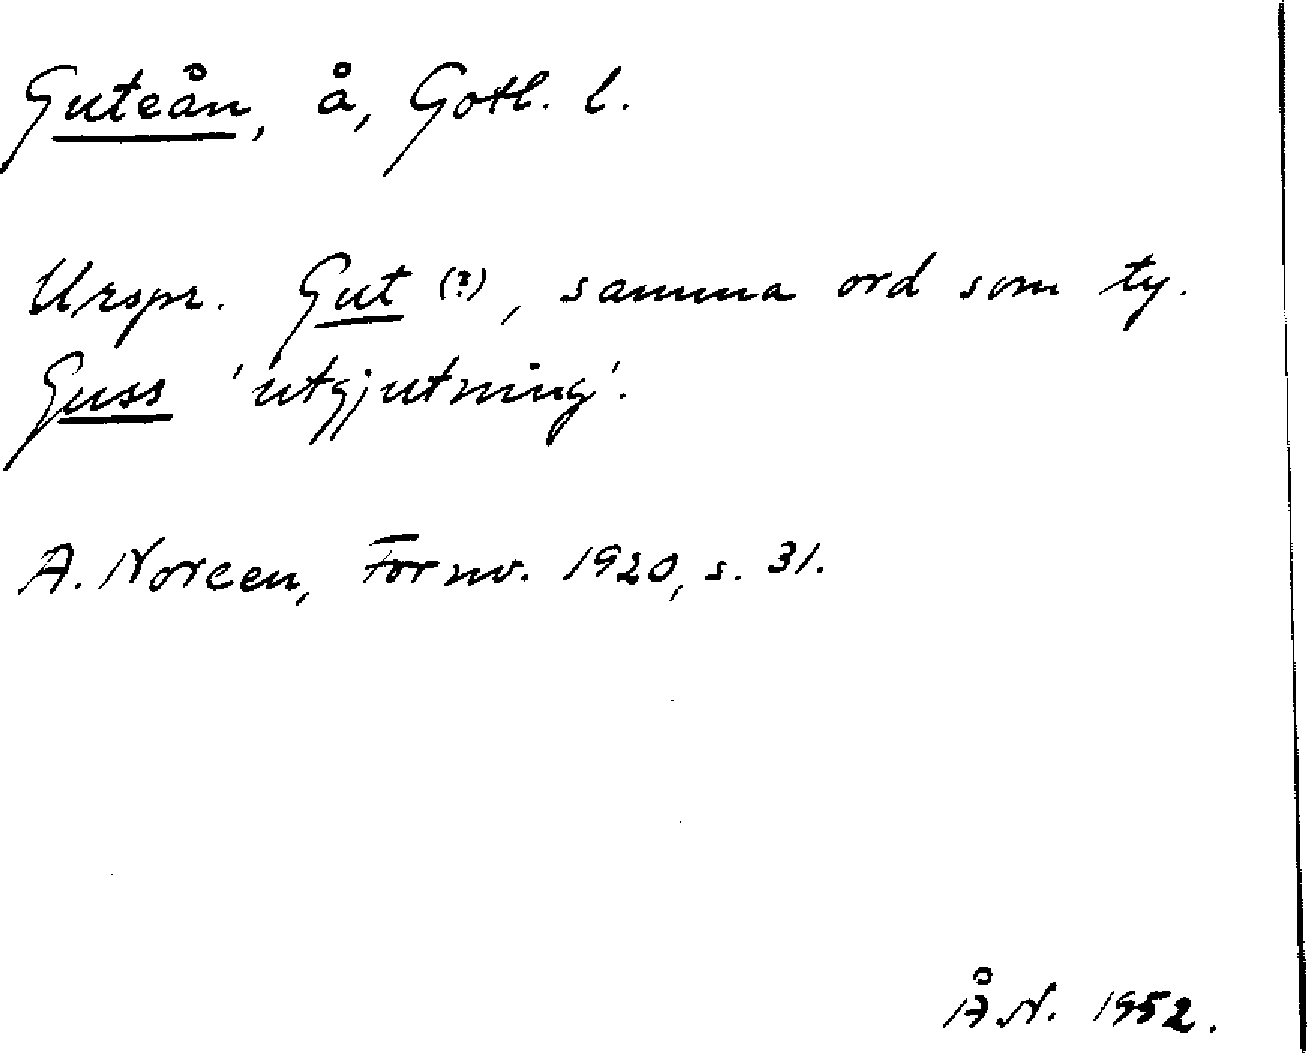 Guteån, å, Gotl. l.
Urspr. Gut (?), samma ord som ty.
Guss 'utgjutning'.
A. Noreen, Fornv. 1920, s. 31.
Å.N. 1952.